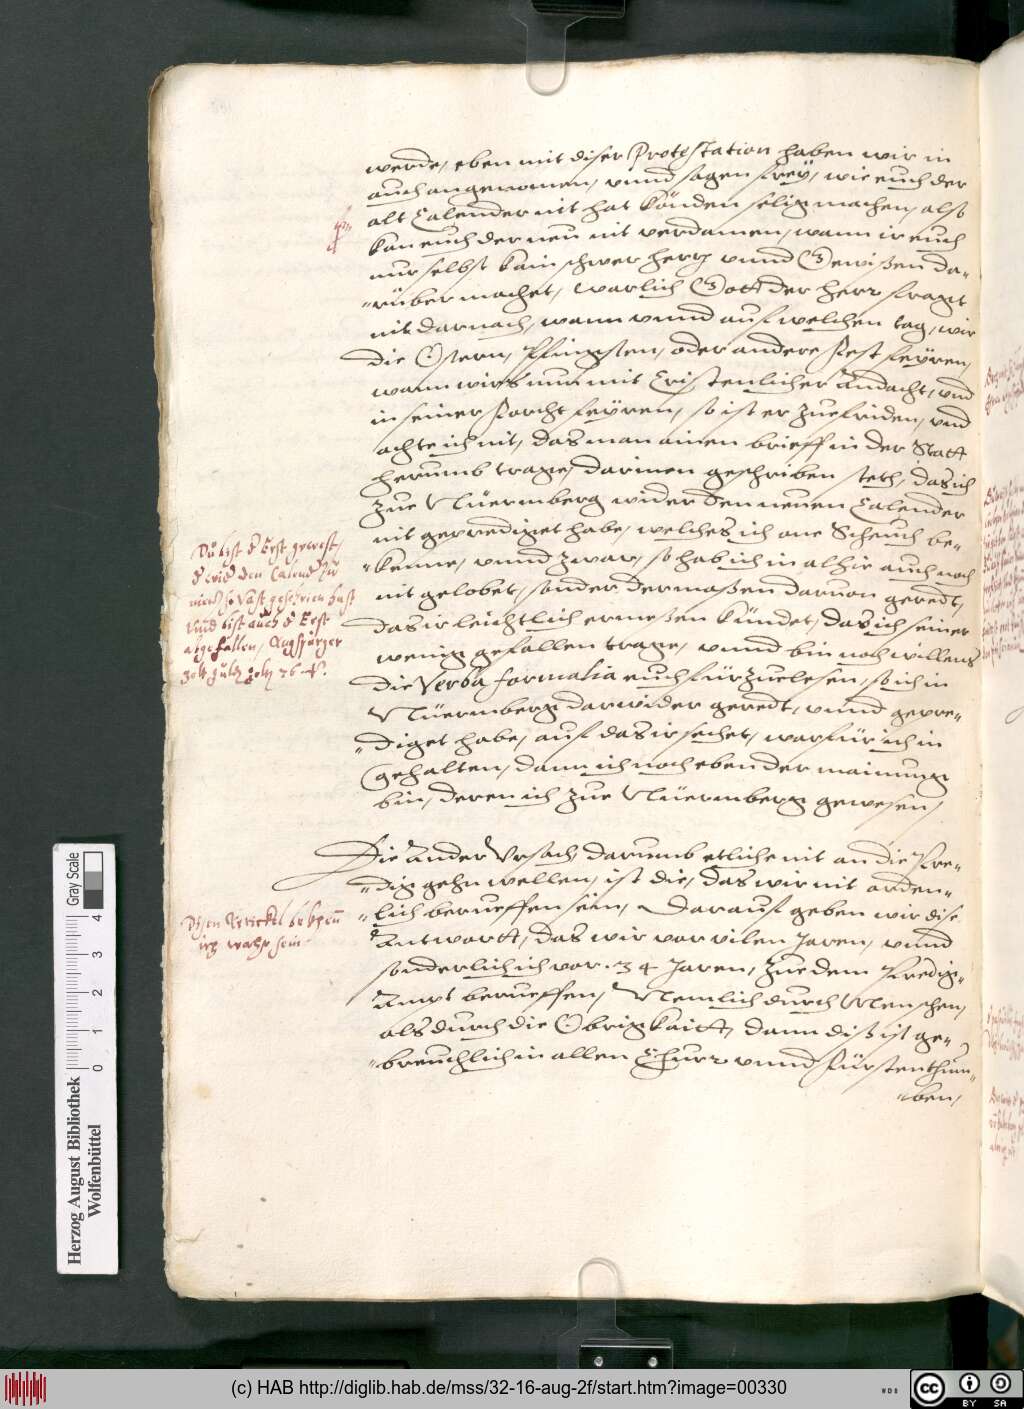 werde, eben mit diser Protestation haben wir in
auch angenomen, vnnd sagen frey, wie euch der
alt Calender nit hat könden selig machen, also
kan euch der neu nit verdamen, wann ir euch
nur selbst kain schwer hertz vnnd Gewißen da-
-rüber machet, warlich Gott der herr fragt
nit darnach, wann vnnd auf welchen tag, wir
die Ostern, Pfingsten, oder andere Fest feyren,
wann wirs nur mit Cristenlicher Andacht, vnd
in seiner Forcht feyren, so ist er zuefriden, vnd
achte ich nit, das man ainen brieff in der Statt
herumb trage, darinen geschriben steth, das ich
zue Nüermberg wider den neuen Calender
nit geprediget habe, welches ich one Scheuch be-
-kenne, vnnd zwar, so hab ich in alhie auch noch
nit gelobet, sonder dermaßen daruon geredt,
das ir leichtlich ermeßen kündet, das ich seiner
wenig gefallen trage, vnnd bin noch willens
die Verba formalia euch fürzuelesen, so ich in
Nüermberg darwider geredt, vnnd gepre-
-diget habe, auf das ir sechet, warfür ich in
gehalten, dann ich noch eben der mainung
bin, deren ich zue Nüermberg gewesen,
Die Ander Vrsach, darumb etliche nit an die Pre-
-dig gehn wellen, ist die, das wir nit orden-
-lich berueffen sein, Darauf geben wir dise
Antwortt, das wir vor vilen Jaren, vnnd
sonderlich ich vor .34 Jaren, zue dem Predig-
Ampt berueffen, Nemlich durch Menschen,
als durch die Obrigkaitt, dann diß ist ge-
-breuchlich in allen Churr vnnd Fürstenthum-
-ben,
Du bist d Erst gewest,
d wid den Calend zu
so vast geschrien hast
vnd bist auch d Erst
abgefallen, Augspurger
Disen Artickel
Herzog August Bibliothek
Wolfenbüttel
Gray Scale
0 1 2 3 4
(c) HAB http://diglib.hab.de/mss/32-16-aug-2f/start.htm?image=00330
WDB
cc BY SA